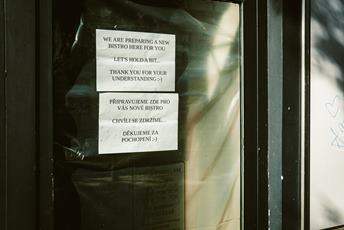 WE ARE PREPARING A NEW
BISTRO HERE FOR YOU
LET'S HOLD A BIT...
THANK YOU FOR YOUR
UNDERSTANDING :-)
PŘIPRAVUJEME ZDE PRO
VÁS NOVÉ BISTRO
CHVÍLI SE ZDRŽÍME...
DĚKUJEME ZA
POCHOPENÍ ;-)